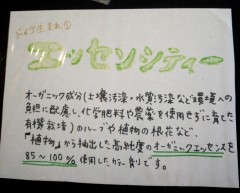 ドイツ生まれの
エッセンシティー
オーガニック成分(土壌汚染・水質汚染など環境への
負担に配慮し、化学肥料や農薬を使用せずに育てた
有機栽培)のハーブや植物の根花など、
『植物』から抽出した高純度のオーガニックエッセンスを
85~100%使用したカラー剤です。